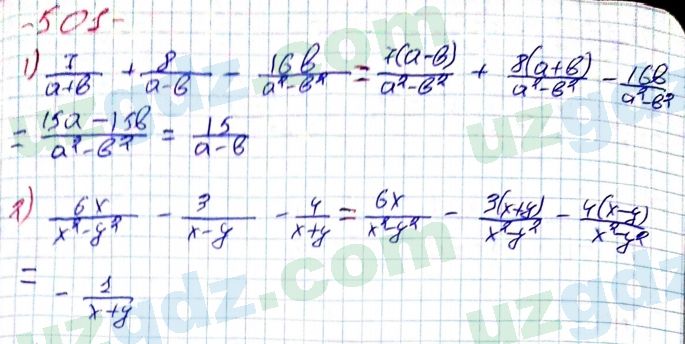 -501-
1) 7/(a+b) + 8/(a-b) - 16b/(a²-b²) = 7(a-b)/(a²-b²) + 8(a+b)/(a²-b²) - 16b/(a²-b²)
= (15a-15b)/(a²-b²) = 15/(a-b)
2) 6x/(x²-y²) - 3/(x-y) - 4/(x+y) = 6x/(x²-y²) - 3(x+y)/(x²-y²) - 4(x-y)/(x²-y²)
=
- 1/(x+y)
uzgdz.com